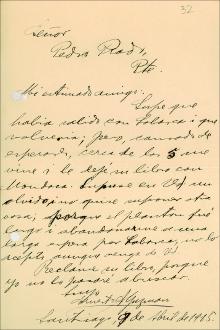 32
Señor
Pedro Prado,
Pte.
Mi estimado amigo:
Supe que
había salido con Tolosa i que
volvería; pero, cansado de
esperarlo, cerca de las 5 me
vine i le dejé un libro con
Mendoza. Supuse en Ud un
olvido, no quise suponer otra
cosa; porque el plantón fué
largo i abandonarme a una
larga espera por Tolosa, no lo
acepto aunque venga de Ud.
Reclame su libro, porque
yo no lo pasaré a buscar.
Suyo
Guzmán
Santiago, 9 de Abril de 1915.